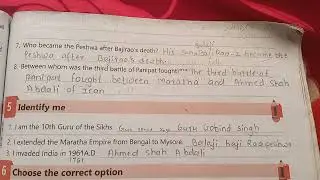 7. Who became the Peshwa after Bajirao's death? His son balaji Rao-I became the
Peshwa after Bajirao's death.
8. Between whom was the third battle of Panipat fought? The third battle of
Panipat fought between Maratha and Ahmed Shah
Abdali of Iran
5 Identify me
1. I am the 10th Guru of the Sikhs Guru Gobind singh
2. I extended the Maratha Empire from Bengal to Mysore. Balaji baji Rao
3. I invaded India in 1961A.D. Ahmed shah Abdali
1761
6 Choose the correct option